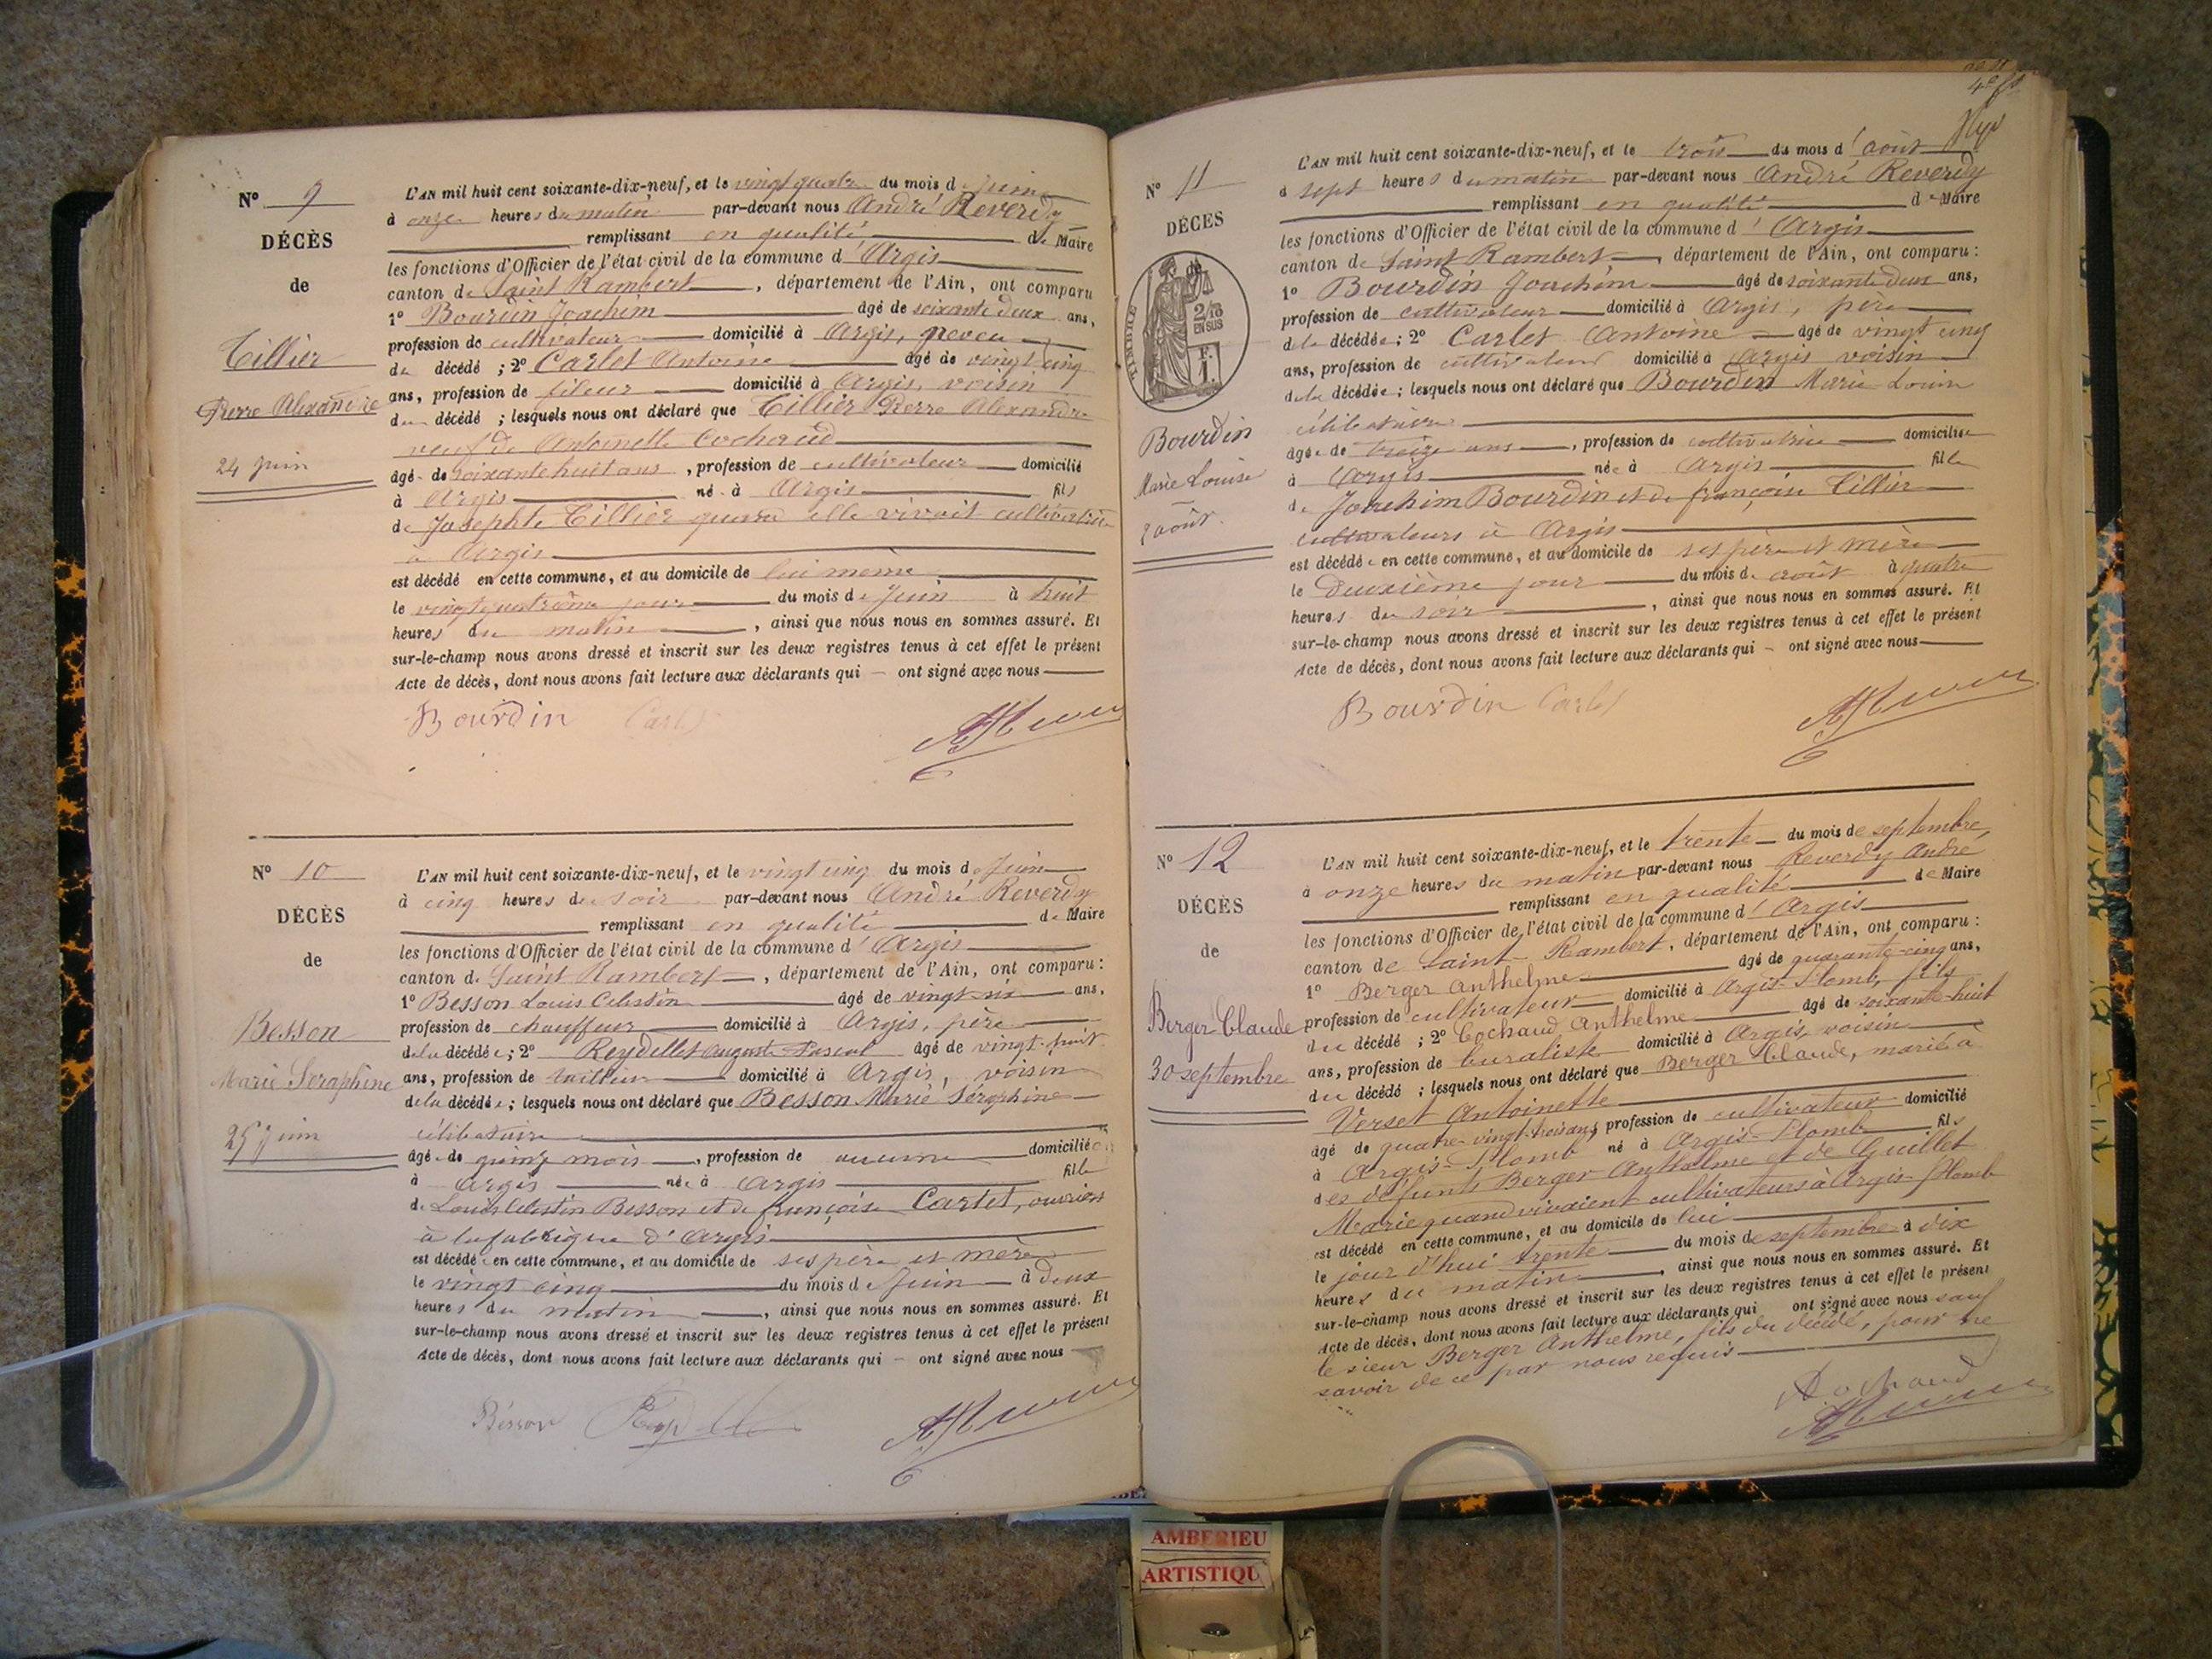 N° 9
DÉCÈS
de
Tillier
Pierre Alexandre
24 Juin
L'AN mil huit cent soixante-dix-neuf, et le vingt quatre du mois de Juin
à onze heures du matin par-devant nous André Reverdy
remplissant en qualité de Maire
les fonctions d'Officier de l'état civil de la commune d'Argis
canton de Saint Rambert, département de l'Ain, ont comparu
1° Bourdin Joachim âgé de soixante deux ans,
profession de cultivateur domicilié à Argis, neveu
du décédé ; 2° Carlet Antoine âgé de vingt cinq
ans, profession de fileur domicilié à Argis, voisin
du décédé ; lesquels nous ont déclaré que Tillier Pierre Alexandre
veuf de Antoinette Cochaud
âgé de soixante huit ans, profession de cultivateur domicilié
à Argis né à Argis fils
de Josephte Tillier quand elle vivait cultivatrice
à Argis
est décédé en cette commune, et au domicile de lui même
le vingt quatrième jour du mois de Juin à huit
heures du matin, ainsi que nous nous en sommes assuré. Et
sur-le-champ nous avons dressé et inscrit sur les deux registres tenus à cet effet le présent
Acte de décès, dont nous avons fait lecture aux déclarants qui – ont signé avec nous
Bourdin Carlet
N° 10
DÉCÈS
de
Besson
Marie Seraphine
25 Juin
L'AN mil huit cent soixante-dix-neuf, et le vingt cinq du mois de Juin
à cinq heures du soir par-devant nous André Reverdy
remplissant en qualité de Maire
les fonctions d'Officier de l'état civil de la commune d'Argis
canton de Saint Rambert, département de l'Ain, ont comparu :
1° Besson Louis Celestin âgé de vingt six ans,
profession de chauffeur domicilié à Argis, père
de la décédée ; 2° Reydellet Auguste Pascal âgé de vingt-huit
ans, profession de tailleur domicilié à Argis, voisin
de la décédée ; lesquels nous ont déclaré que Besson Marie Séraphine
célibataire
âgée de quinze mois, profession de aucune domiciliée
à Argis née à Argis fille
de Louis Celestin Besson et de françoise Carlet, ouvriers
à la fabrique d'Argis
est décédée en cette commune, et au domicile de ses père et mère
le vingt cinq du mois de Juin à deux
heures du matin, ainsi que nous nous en sommes assuré. Et
sur-le-champ nous avons dressé et inscrit sur les deux registres tenus à cet effet le présent
Acte de décès, dont nous avons fait lecture aux déclarants qui – ont signé avec nous
Bésson
N° 11
DÉCES
de
TIMBRE
2/10
EN SUS
F.
1.
Bourdin
Marie Louise
2 août
L'AN mil huit cent soixante-dix-neuf, et le trois du mois d'août
à sept heures du matin par-devant nous André Reverdy
remplissant en qualité de Maire
les fonctions d'Officier de l'état civil de la commune d'Argis
canton de Saint Rambert, département de l'Ain, ont comparu :
1° Bourdin Joachim âgé de soixante deux ans,
profession de cultivateur domicilié à Argis, père
de la décédée ; 2° Carlet Antoine âgé de vingt cinq
ans, profession de cultivateur domicilié à Argis voisin
de la décédée ; lesquels nous ont déclaré que Bourdin Marie Louise
célibataire
âgée de treize ans, profession de cultivatrice domiciliée
à Argis née à Argis fille
de Joachim Bourdin et de françoise Tillier
cultivateurs à Argis
est décédée en cette commune, et au domicile de ses père et mère
le deuxième jour du mois de août à quatre
heures du soir, ainsi que nous nous en sommes assuré. Et
sur-le-champ nous avons dressé et inscrit sur les deux registres tenus à cet effet le présent
Acte de décès, dont nous avons fait lecture aux déclarants qui – ont signé avec nous
Bourdin Carlet
N° 12
DÉCÈS
de
Berger Claude
30 septembre
L'AN mil huit cent soixante-dix-neuf, et le trente du mois de septembre,
à onze heures du matin par-devant nous Reverdy André
remplissant en qualité de Maire
les fonctions d'Officier de l'état civil de la commune d'Argis
canton de Saint-Rambert, département de l'Ain, ont comparu :
1° Berger Anthelme âgé de quarante-cinq ans,
profession de cultivateur domicilié à Argis-Plomb, fils
du décédé ; 2° Cochaud Anthelme âgé de soixante-huit
ans, profession de buraliste domicilié à Argis, voisin
du décédé ; lesquels nous ont déclaré que Berger Claude, marié à
Verset Antoinette
âgé de quatre-vingt-trois ans, profession de cultivateur domicilié
à Argis-Plomb né à Argis-Plomb fils
des défunts Berger Anthelme et de Guillet
Marie quand vivaient cultivateurs à Argis-Plomb
est décédé en cette commune, et au domicile de lui
le jour d'hui trente du mois de septembre à dix
heures du matin, ainsi que nous nous en sommes assuré. Et
sur-le-champ nous avons dressé et inscrit sur les deux registres tenus à cet effet le présent
Acte de décès, dont nous avons fait lecture aux déclarants qui ont signé avec nous sauf
le sieur Berger Anthelme, fils du décédé, pour ne
savoir de ce par nous requis
A Cochaud
AMBERIEU
ARTISTIQU